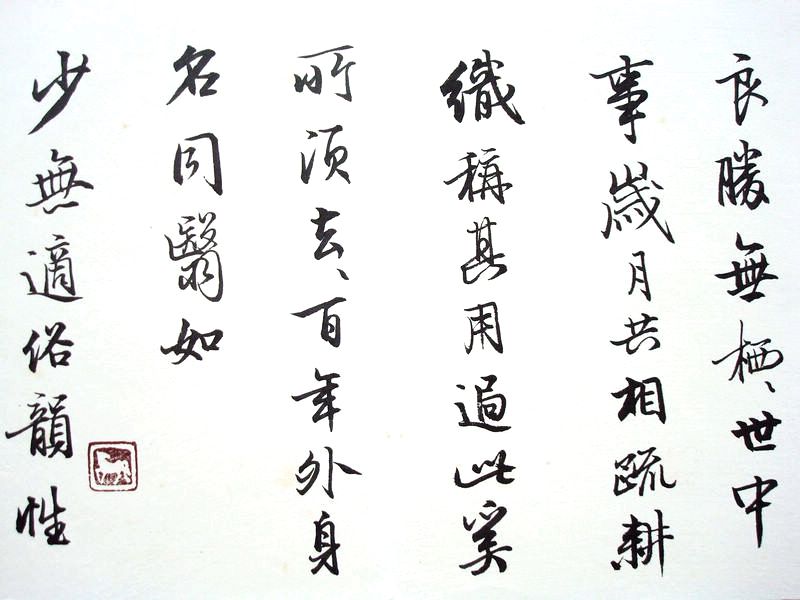 良勝無栖栖世中
事歲月共相疏耕
織稱其用過此奚
所須去去百年外身
名同翳如
少無適俗韻性